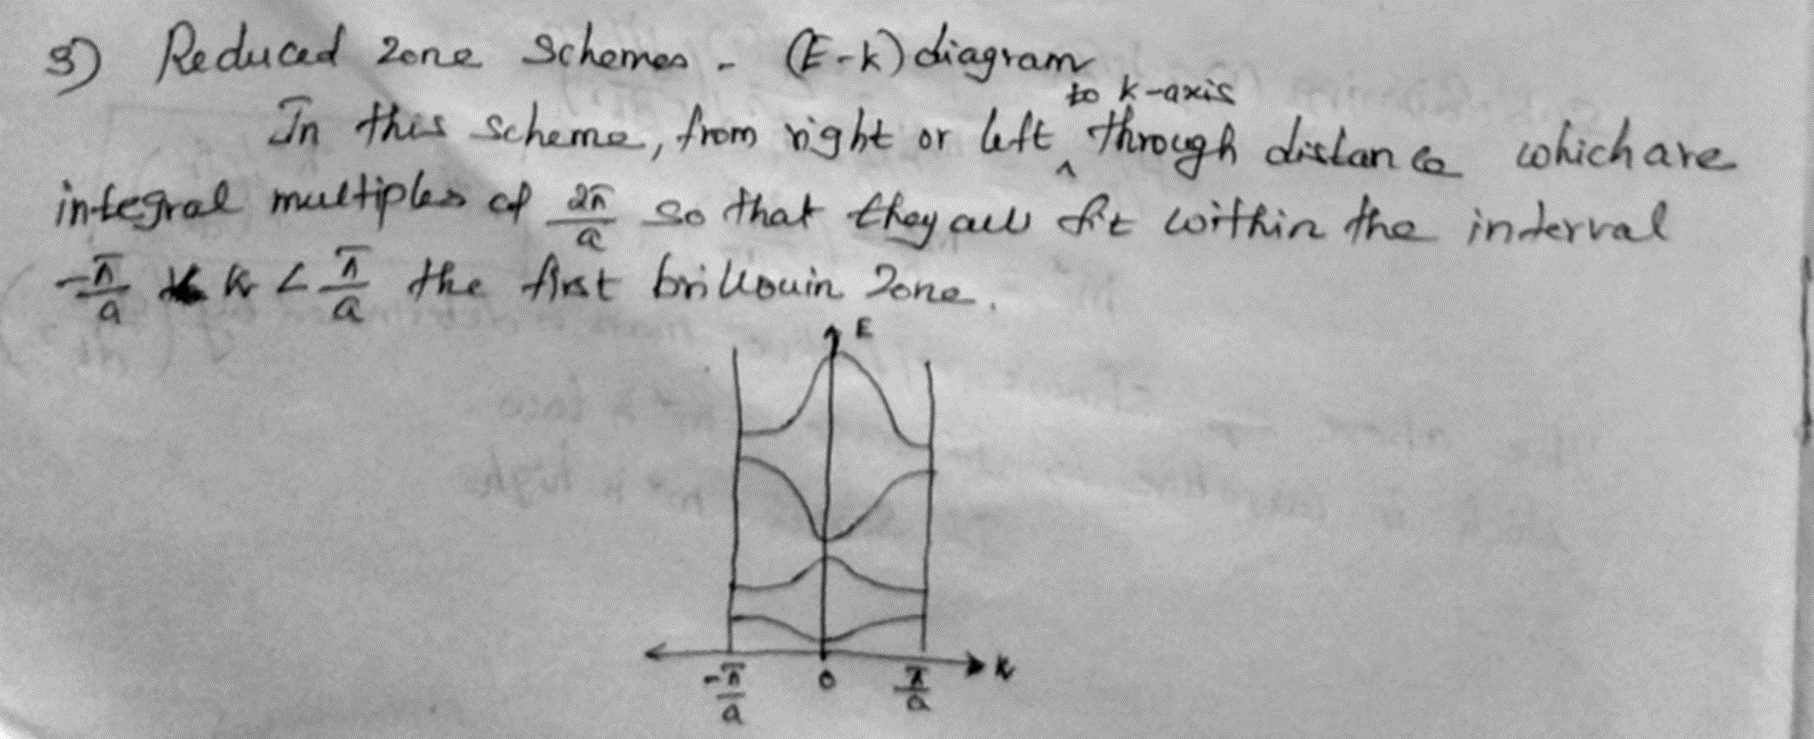 3) Reduced zone Schemes - (E-k) diagram
In this scheme, from right or left to k-axis through distance which are
integral multiples of 2π/a so that they all fit within the interval
-π/a < k < π/a the first brillouin zone.
E
k
-π/a 0 π/a